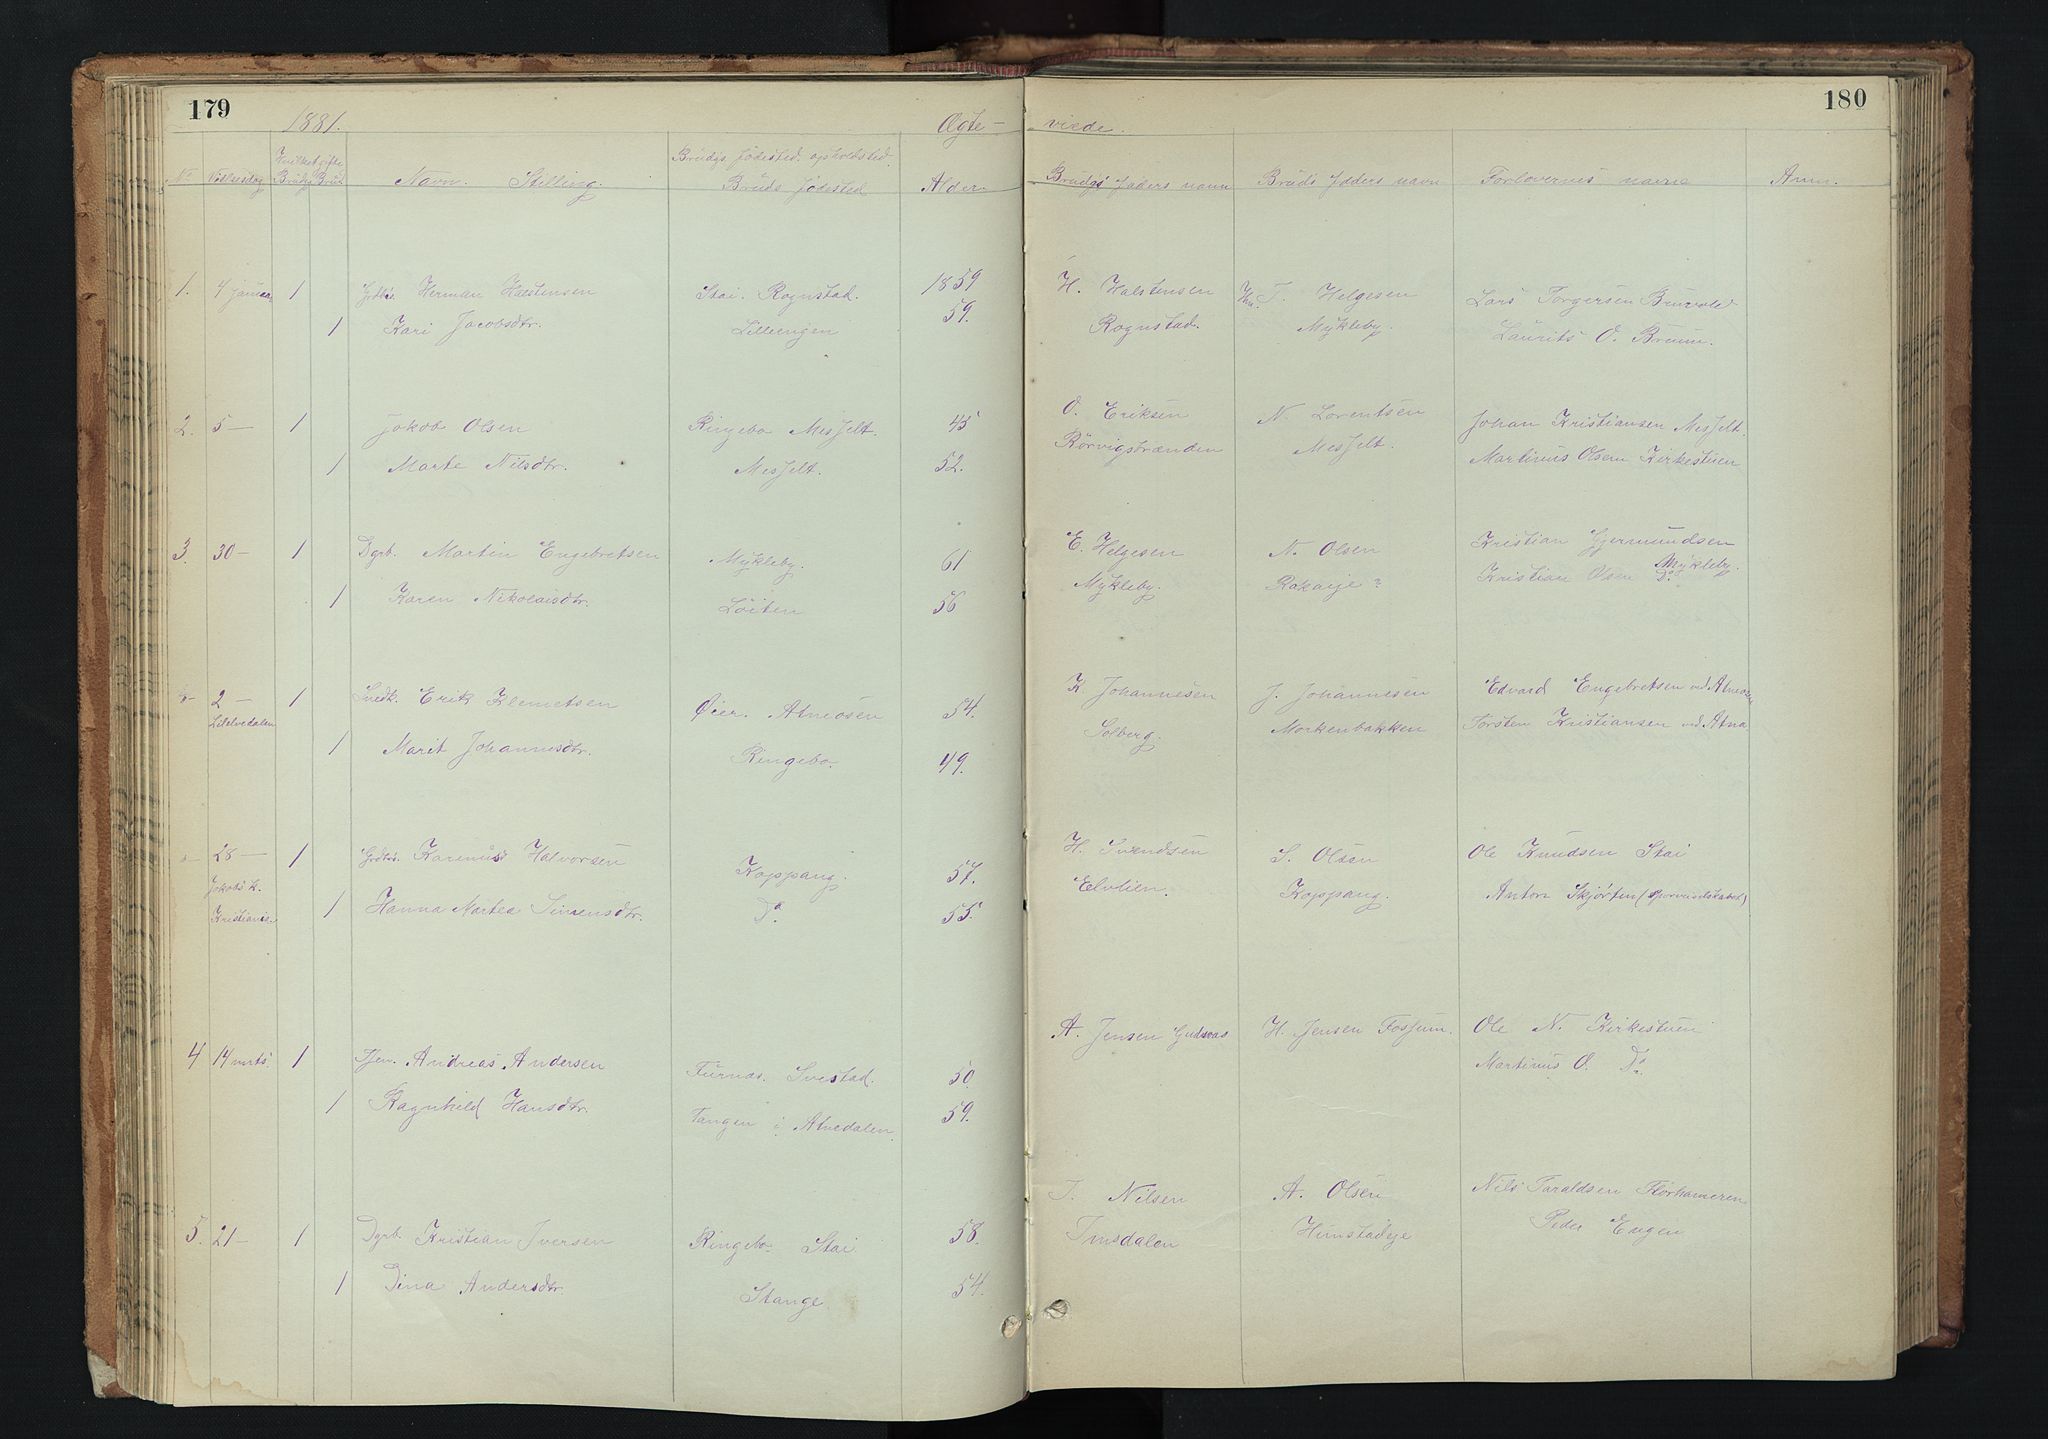 179
1881.
Ægte-
viede.
180
No
Vielsesdag
Hvilket gifte
Brudg. Brud.
Navn. Stilling.
Brudgs. fødested. opholdsted.
Bruds fødested
Alder
Brudgs faders navn
Bruds faders navn
Forlovernes navne
Anm.
1. 4 januar 1 Herman Halstensen Stai. Rognstad. 1859 H. Halstensen T. Helgesen Lars Torgersen Bruvold
1 Kari Jacobsdtr. Lilleengen 59. Rognstad. Mykleby. Laurits O. Bruun.
2. 5 — 1 Jakob Olsen Ringebo Messelt. 45 O. Eriksen N. Lorentsen Johan Kristiansen Messelt.
1 Marte Nilsdtr. Messelt. 52. Rørvigstranden Messelt. Martinus Olsen Kirkestuen
3. 30 — 1 Dgrb. Martin Engebretsen Mykleby. 61 E. Helgesen N. Olsen Kristian Gjermundsen
Mykleby.
1 Karen Nikolaisdtr. Løiten 56 Mykleby. Rokoeje? Kristian Olsen Do.
2 — 1 Erik Klemetsen Øier. Atneosen 54. K. Johannesen J. Johannesen Edvard Engebretsen ved Atneosen
Lilelvedalen
1 Marit Johannesdtr. Ringebo. 49. Solberg. Morkenbakken Torsten Kristiansen ved Atna
28 — 1 Grdbs. Karenus Halvorsen Koppang. 57. H. Svendsen S. Olsen Ole Knudsen Stai
Jakobs k.
Kristiania
1 Hanna Martea Simensdtr. Do. 55. Elvelien. Koppang. Anton Skjørten (Sporveiselskabet)
4 14 mrts. 1 Tjen. Andreas Andersen Furnas. Svestad. 50. A. Jensen Gudsvas H. Jensen Fossum. Ole N. Kirkestuen
1 Ragnhild Hansdtr. Tangen i Atnedalen. 59. Martinus O. Do
5. 21 — 1 Dgrb. Kristian Iversen Ringebo. Stai 58. I. Nilsen A. Olsen Nils Taraldsen Florhameren
1 Dina Andersdtr. Stange. 54. Imsdalen Hunstadeje Peder Engen